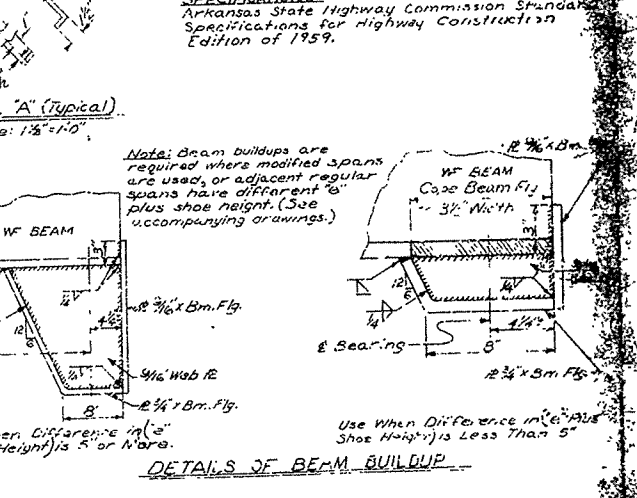 Arkansas State Highway Commission Standard
Specifications for Highway Construction
Edition of 1959.
"A" (Typical)
1½"=1'-0"
Note: Beam buildups are
required where modified spans
are used, or adjacent regular
spans have different "e"
plus shoe height. (See
accompanying drawings.)
WF BEAM
3"
12
6
¼
4½"
9/16" Web ℄
℄ ¾" x Bm. Flg.
8"
Height) is 5" or More.
WF BEAM
Cope Beam Flg
3½" Width
3"
12
6
¼
¼
4¼"
℄ Bearing
8"
℄ ¾" x Bm. Flg.
Use When Difference in ("e" Plus
Shoe Height) is Less Than 5"
DETAILS OF BEAM BUILDUP